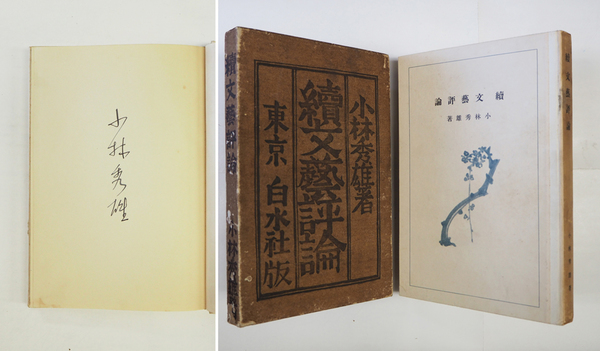 小林秀雄
續文藝評論
小林秀雄著
續文藝評論
東京 白水社版
續文藝評論
小林秀雄著
續文藝評論